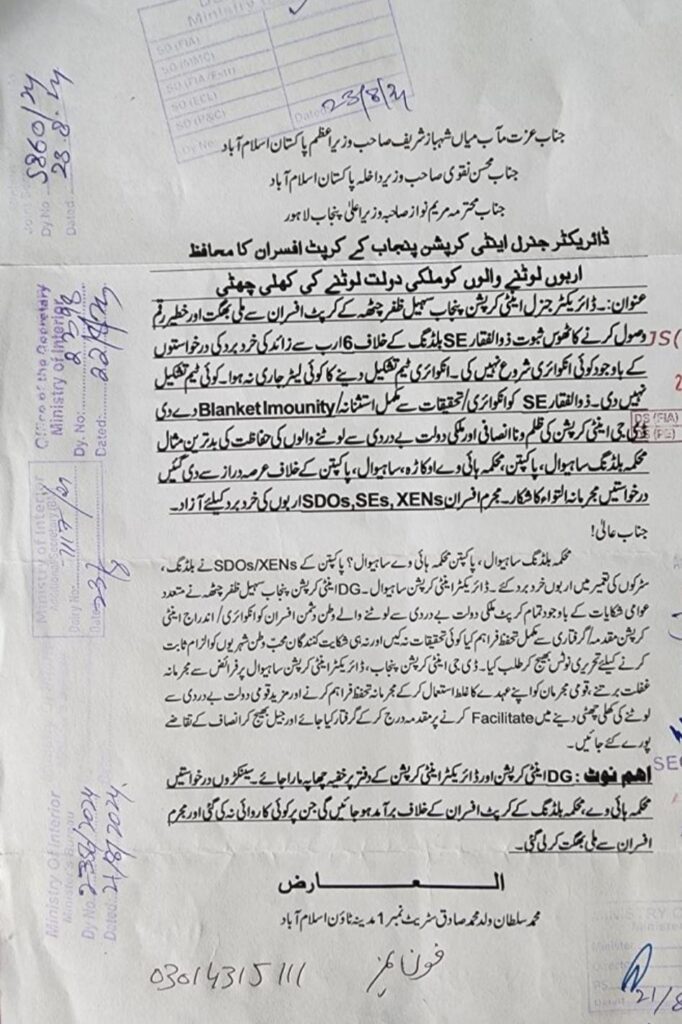 Ministry
SO (FIA)
SO (MMC)
SO (FIA/Estt)
SO (ECL)
SO (P&C)
Dy No
Dated
23/8/24
Dy No 5860/24
Dated: 23.8.24
جناب عزت مآب میاں شہباز شریف صاحب وزیراعظم پاکستان اسلام آباد
جناب محسن نقوی صاحب وزیر داخلہ پاکستان اسلام آباد
جناب محترمہ مریم نواز صاحبہ وزیر اعلیٰ پنجاب لاہور
ڈائریکٹر جنرل اینٹی کرپشن پنجاب کے کرپٹ افسران کا محافظ
اربوں لوٹنے والوں کو ملکی دولت لوٹنے کی کھلی چھٹی
عنوان:۔ ڈائریکٹر جنرل اینٹی کرپشن پنجاب سہیل ظفر چٹھہ کے کرپٹ افسران سے ملی بھگت اور خطیر رقم
وصول کرنے کا ٹھوس ثبوت ذوالفقار SE بلڈنگ کے خلاف 6 ارب سے زائد کی خرد برد کی درخواستوں
کے باوجود کوئی انکوائری شروع نہیں کی۔ انکوائری ٹیم تشکیل دینے کا کوئی لیٹر جاری نہ ہوا۔ کوئی ٹیم تشکیل
نہیں دی۔ ذوالفقار SE کو انکوائری/تحقیقات سے مکمل استثنا/Blanket Imounity دے دی
ڈی جی اینٹی کرپشن کی ظلم و نا انصافی اور ملکی دولت بے دردی سے لوٹنے والوں کی حفاظت کی بدترین مثال
محکمہ بلڈنگ ساہیوال، پاکپتن، محکمہ ہائی وے اوکاڑہ، ساہیوال، پاکپتن کے خلاف عرصہ دراز سے دی گئیں
درخواستیں مجرمانہ التواء کا شکار۔ مجرم افسران SDOs, SEs, XENs اربوں کی خرد برد کیلئے آزاد۔
JS(
DS (FIA)
جناب عالی!
محکمہ بلڈنگ ساہیوال، پاکپتن محکمہ ہائی وے ساہیوال؟ پاکپتن کے SDOs/XENs نے بلڈنگ،
سڑکوں کی تعمیر میں اربوں خرد برد کئے۔ ڈائریکٹر اینٹی کرپشن ساہیوال۔ DG اینٹی کرپشن پنجاب سہیل ظفر چٹھہ نے متعدد
عوامی شکایات کے باوجود تمام کرپٹ ملکی دولت بے دردی سے لوٹنے والے وطن دشمن افسران کو انکوائری/ اندراج اینٹی
کرپشن مقدمہ/گرفتاری سے مکمل تحفظ فراہم کیا کوئی تحقیقات نہ کیں اور نہ ہی شکایت کنندگان محب وطن شہریوں کو الزام ثابت
کرنے کیلئے تحریری نوٹس بھیج کر طلب کیا۔ ڈی جی اینٹی کرپشن پنجاب، ڈائریکٹر اینٹی کرپشن ساہیوال پر فرائض سے مجرمانہ
غفلت برتنے، قومی مجرمان کو اپنے عہدے کا غلط استعمال کر کے مجرمانہ تحفظ فراہم کرنے اور مزید قومی دولت بے دردی سے
لوٹنے کی کھلی چھٹی دینے میں Facilitate کرنے پر مقدمہ درج کر کے گرفتار کیا جائے اور جیل بھیج کر انصاف کے تقاضے
پورے کئے جائیں۔
اہم نوٹ: DG اینٹی کرپشن اور ڈائریکٹر اینٹی کرپشن کے دفتر پر خفیہ چھاپہ مارا جائے۔ سینکڑوں درخواستیں
محکمہ ہائی وے، محکمہ بلڈنگ کے کرپٹ افسران کے خلاف برآمد ہو جائیں گی جن پر کوئی کاروائی نہ کی گئی اور مجرم
افسران سے ملی بھگت کر لی گئی۔
العارض
محمد سلطان ولد محمد صادق سٹریٹ نمبر 1 مدینہ ٹاؤن اسلام آباد
فون نمبر
03014315111
Office of the Secretary
Ministry of Interior
Dy. No:
Dated:
Ministry of Interior
Diary No:
Dated
Ministry Of Interior
Dy No
Dated: 21/8/2024
Minister
21/8